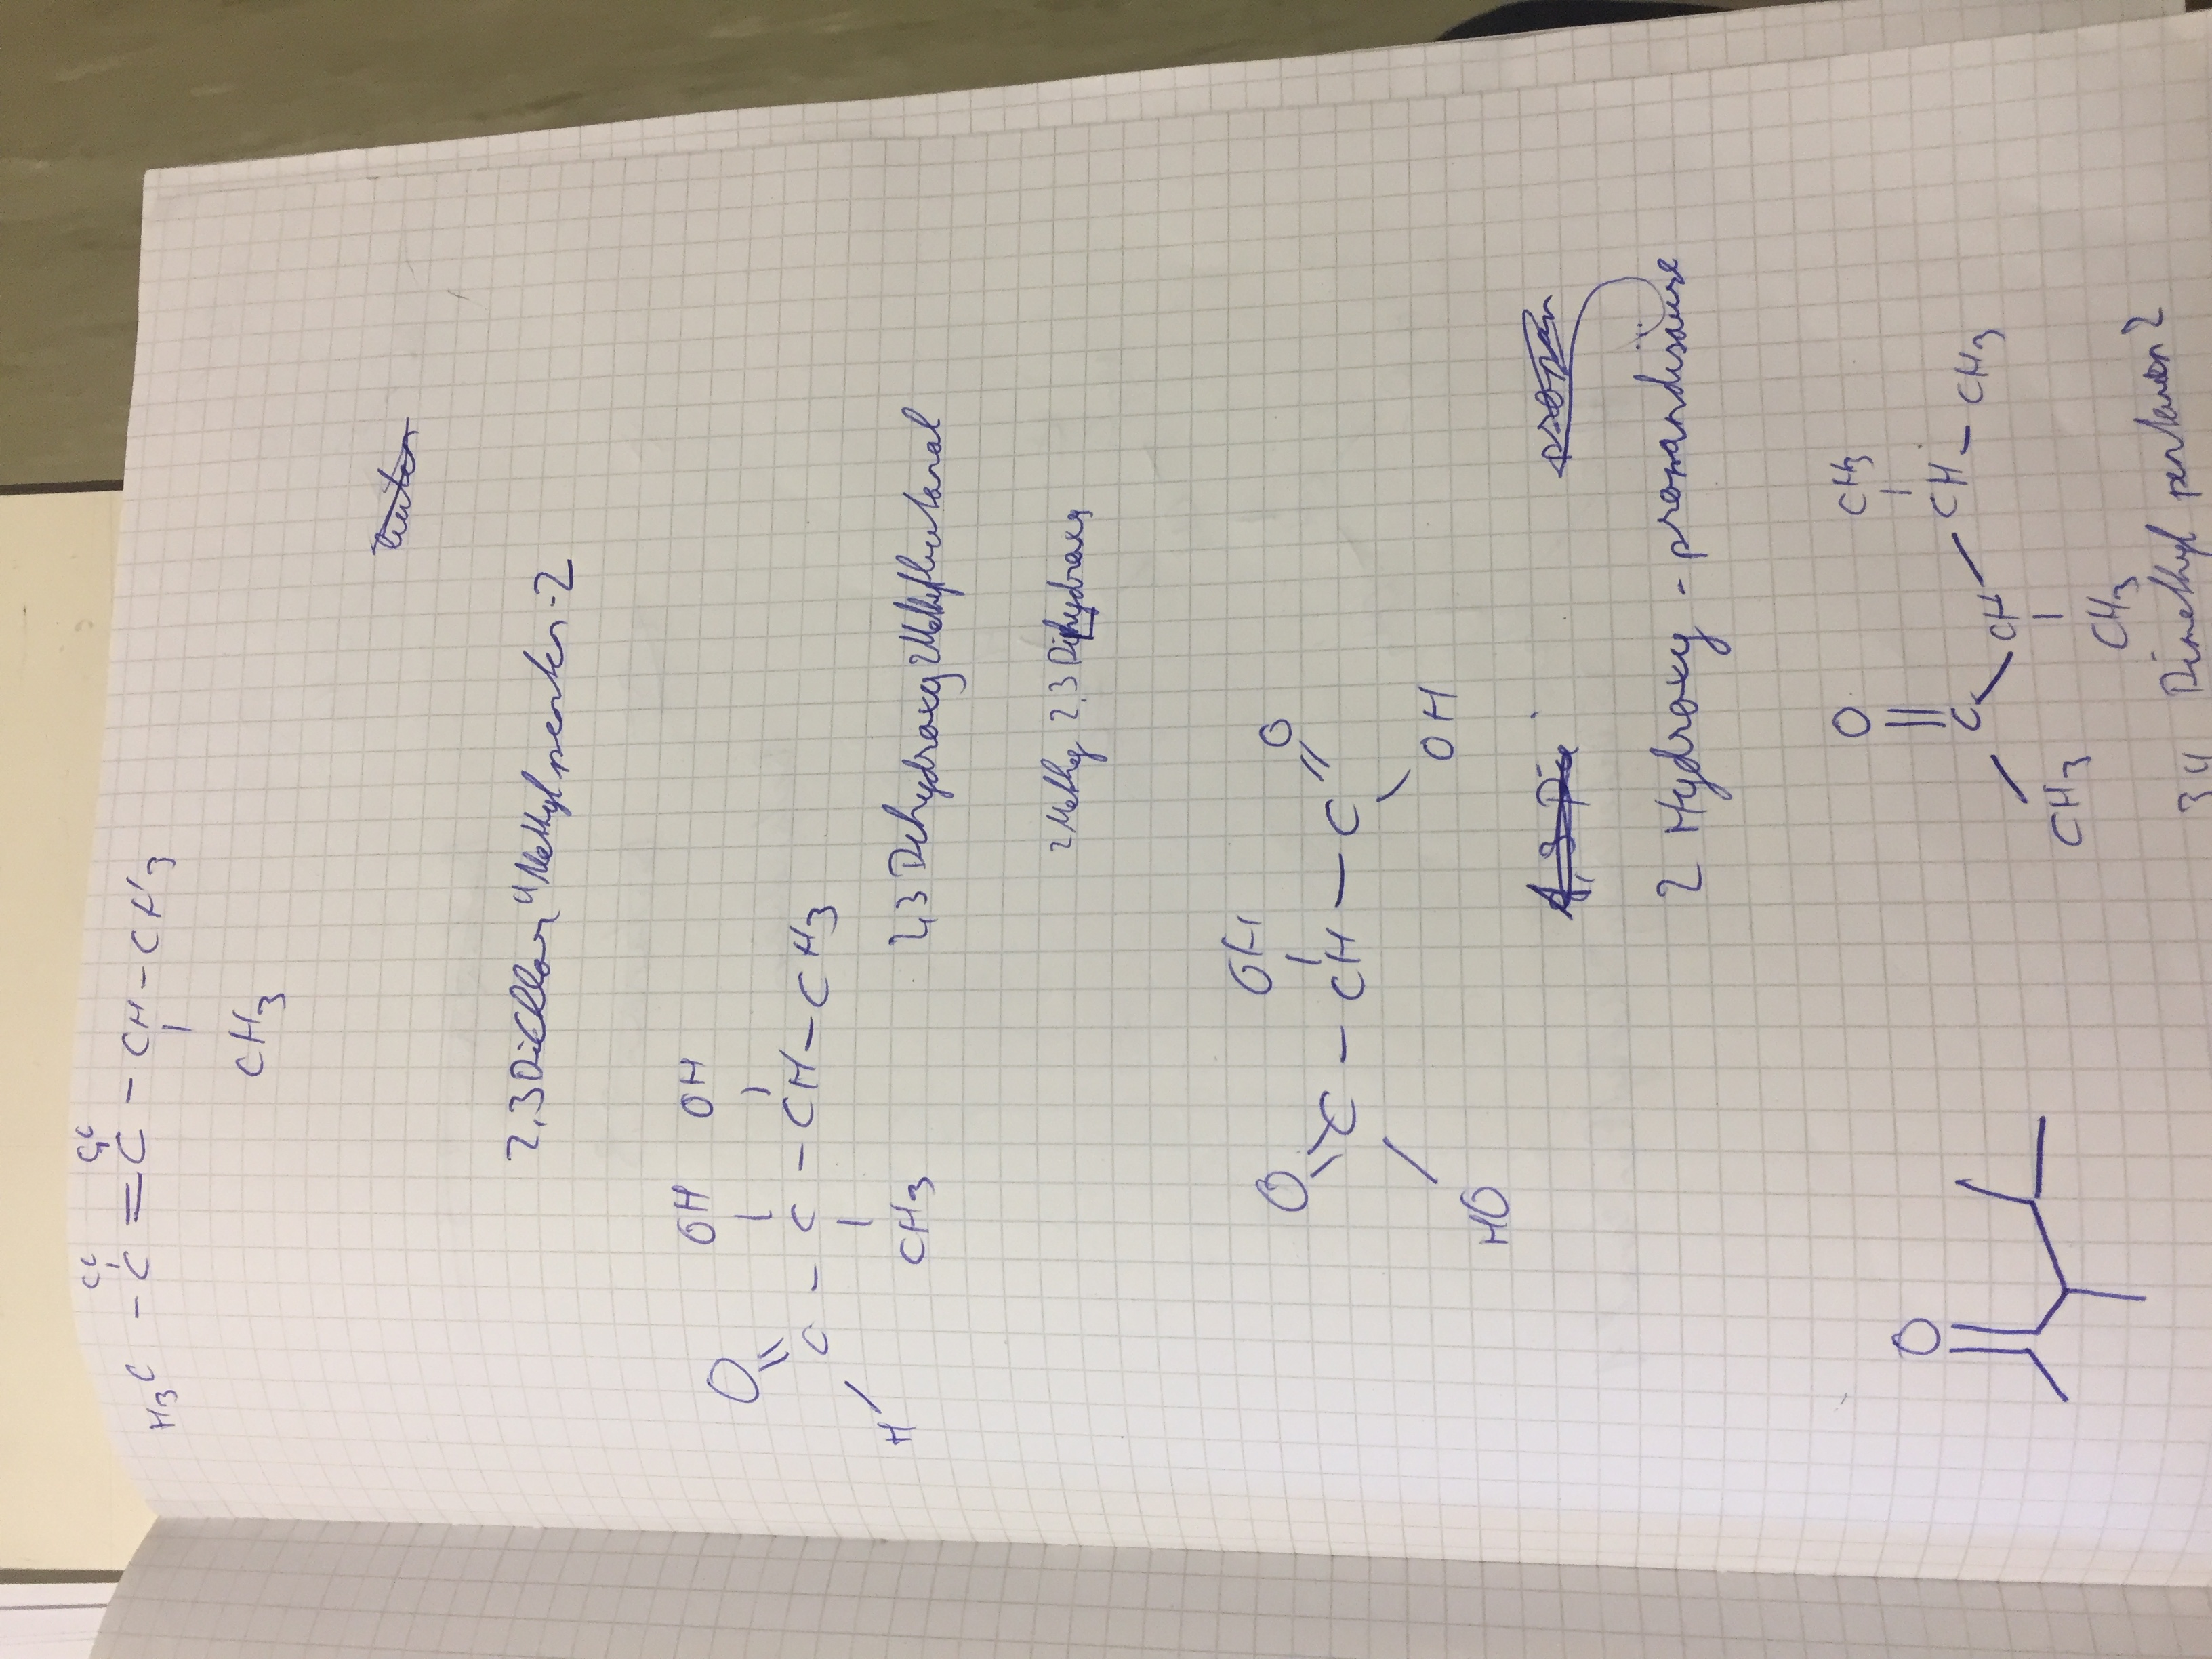 Cl Cl
H3C - C = C - CH - CH3
CH3
2,3 Dichlor 4 Methyl penten-2
OH OH
O
C - C - CH - CH3
H CH3
2,3 Dihydroxy 2 Methylbutanal
2 Methy 2,3 Dihydroxy
O OH O
C - CH - C
HO OH
1,3 Di propan
2 Hydroxy - propandisäure
O CH3
O C CH - CH3
CH3 CH
CH3
3 4 Dimethyl pentanon 2